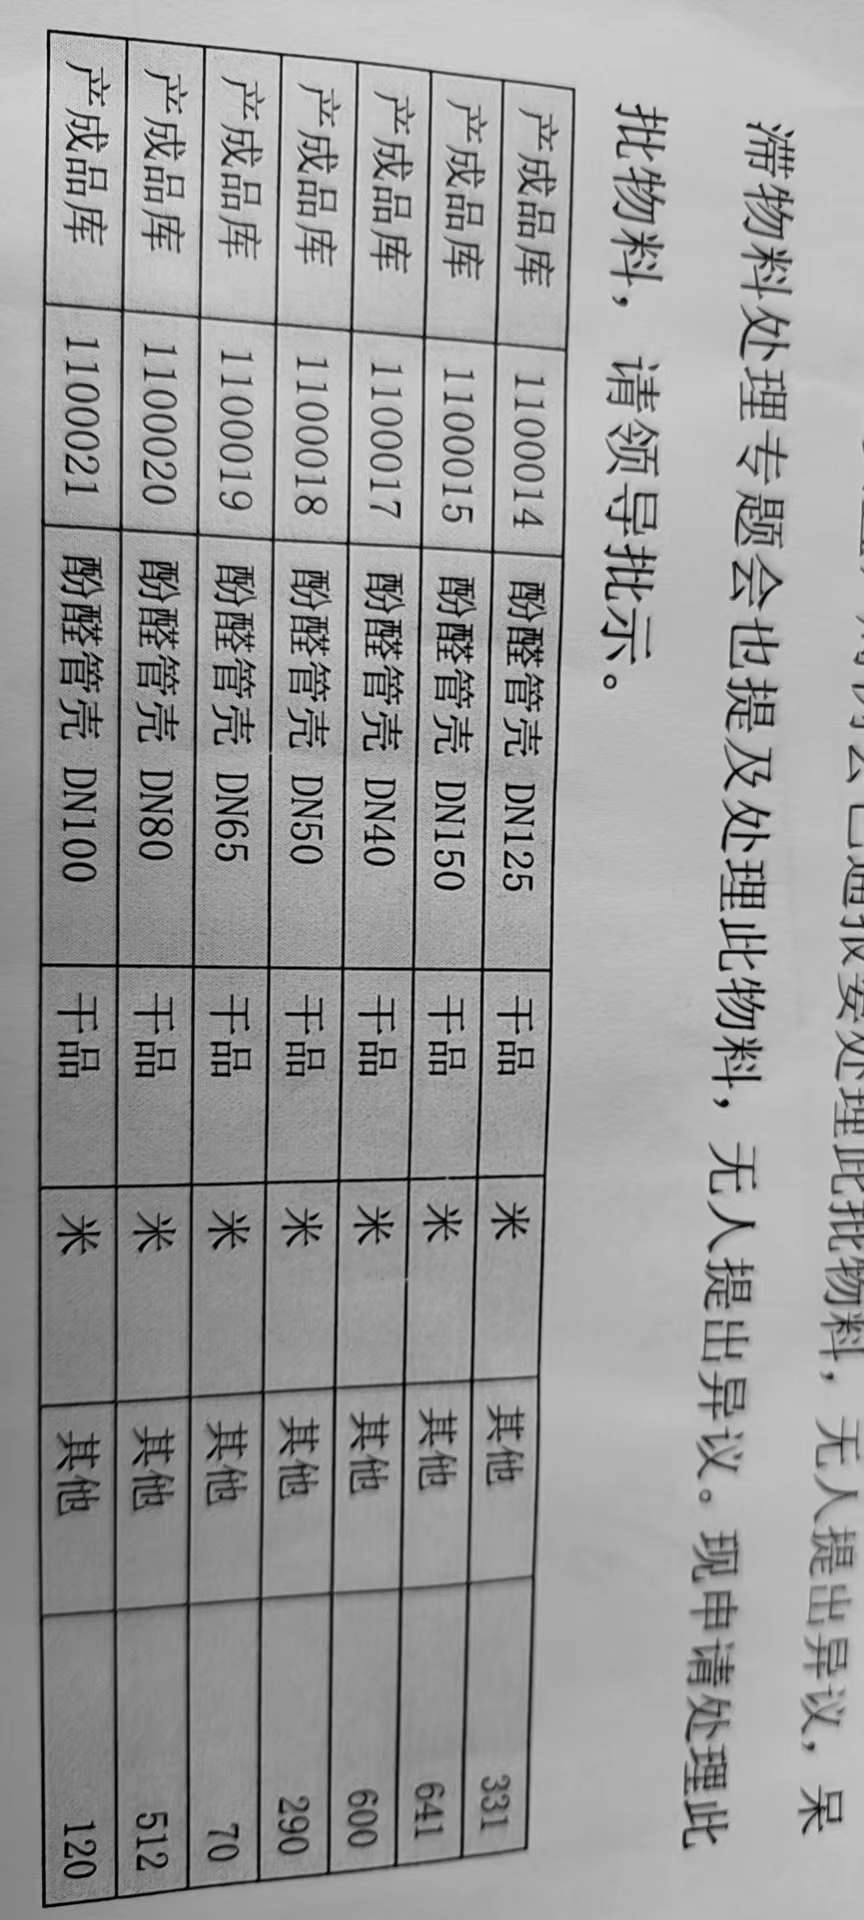 会已通报要处理此批物料，无人提出异议，呆
滞物料处理专题会也提及处理此物料，无人提出异议。现申请处理此
批物料，请领导批示。
产成品库 1100014 酚醛管壳 DN125 干品 米 其他 331
产成品库 1100015 酚醛管壳 DN150 干品 米 其他 641
产成品库 1100017 酚醛管壳 DN40 干品 米 其他 600
产成品库 1100018 酚醛管壳 DN50 干品 米 其他 290
产成品库 1100019 酚醛管壳 DN65 干品 米 其他 70
产成品库 1100020 酚醛管壳 DN80 干品 米 其他 512
产成品库 1100021 酚醛管壳 DN100 干品 米 其他 120